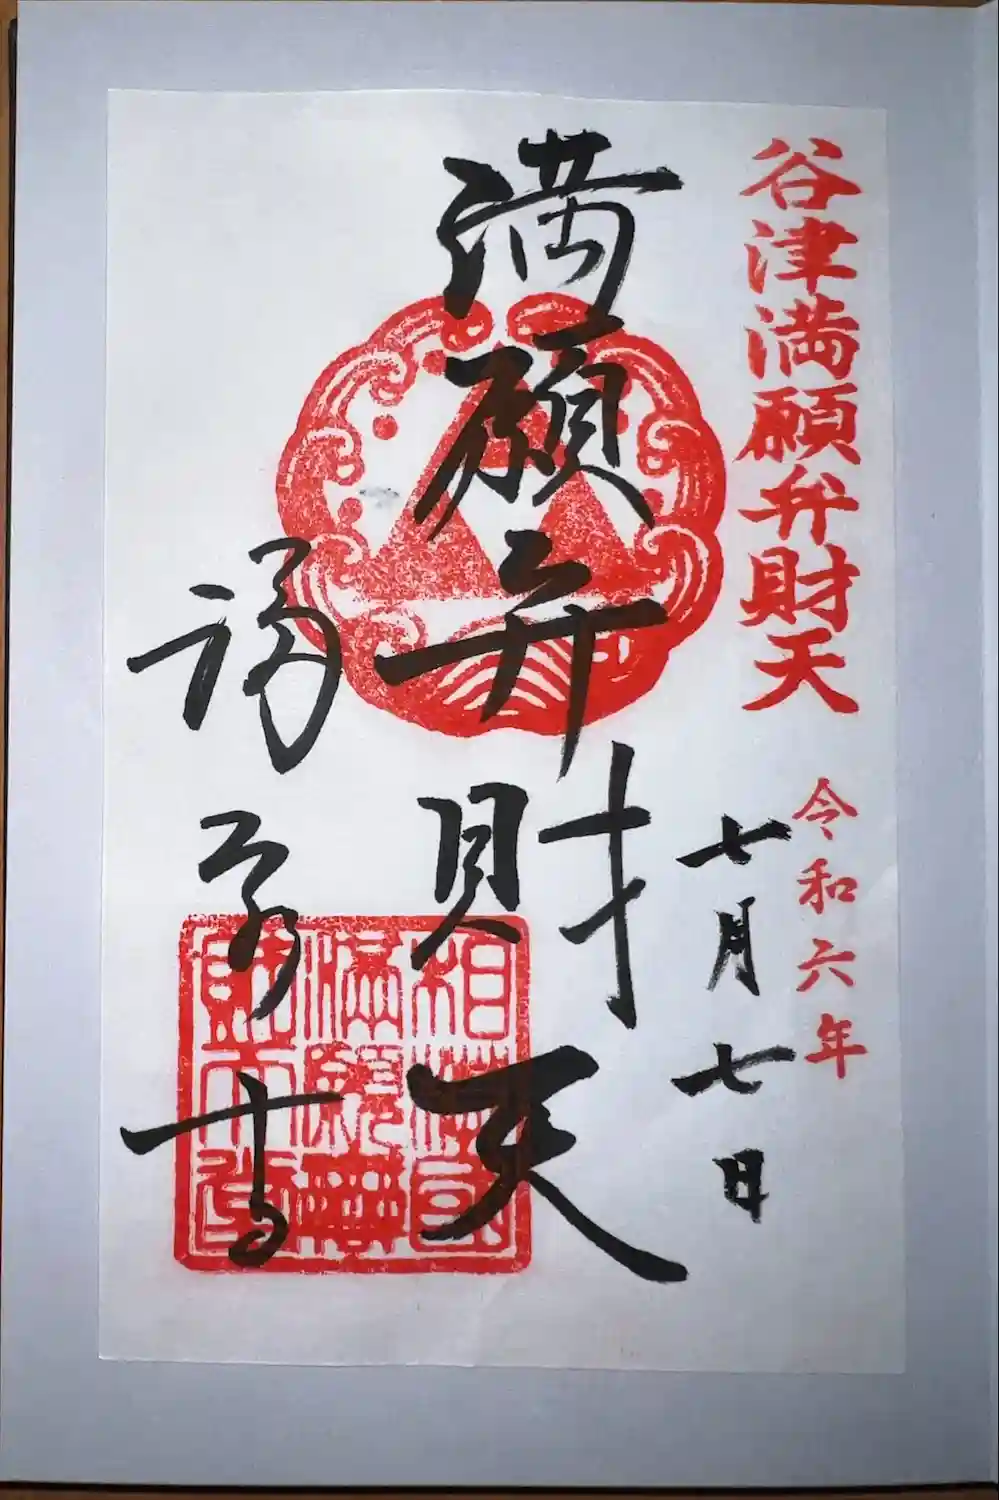 谷津満願弁財天
令和六年
七月七日
満願弁財天
福泉寺